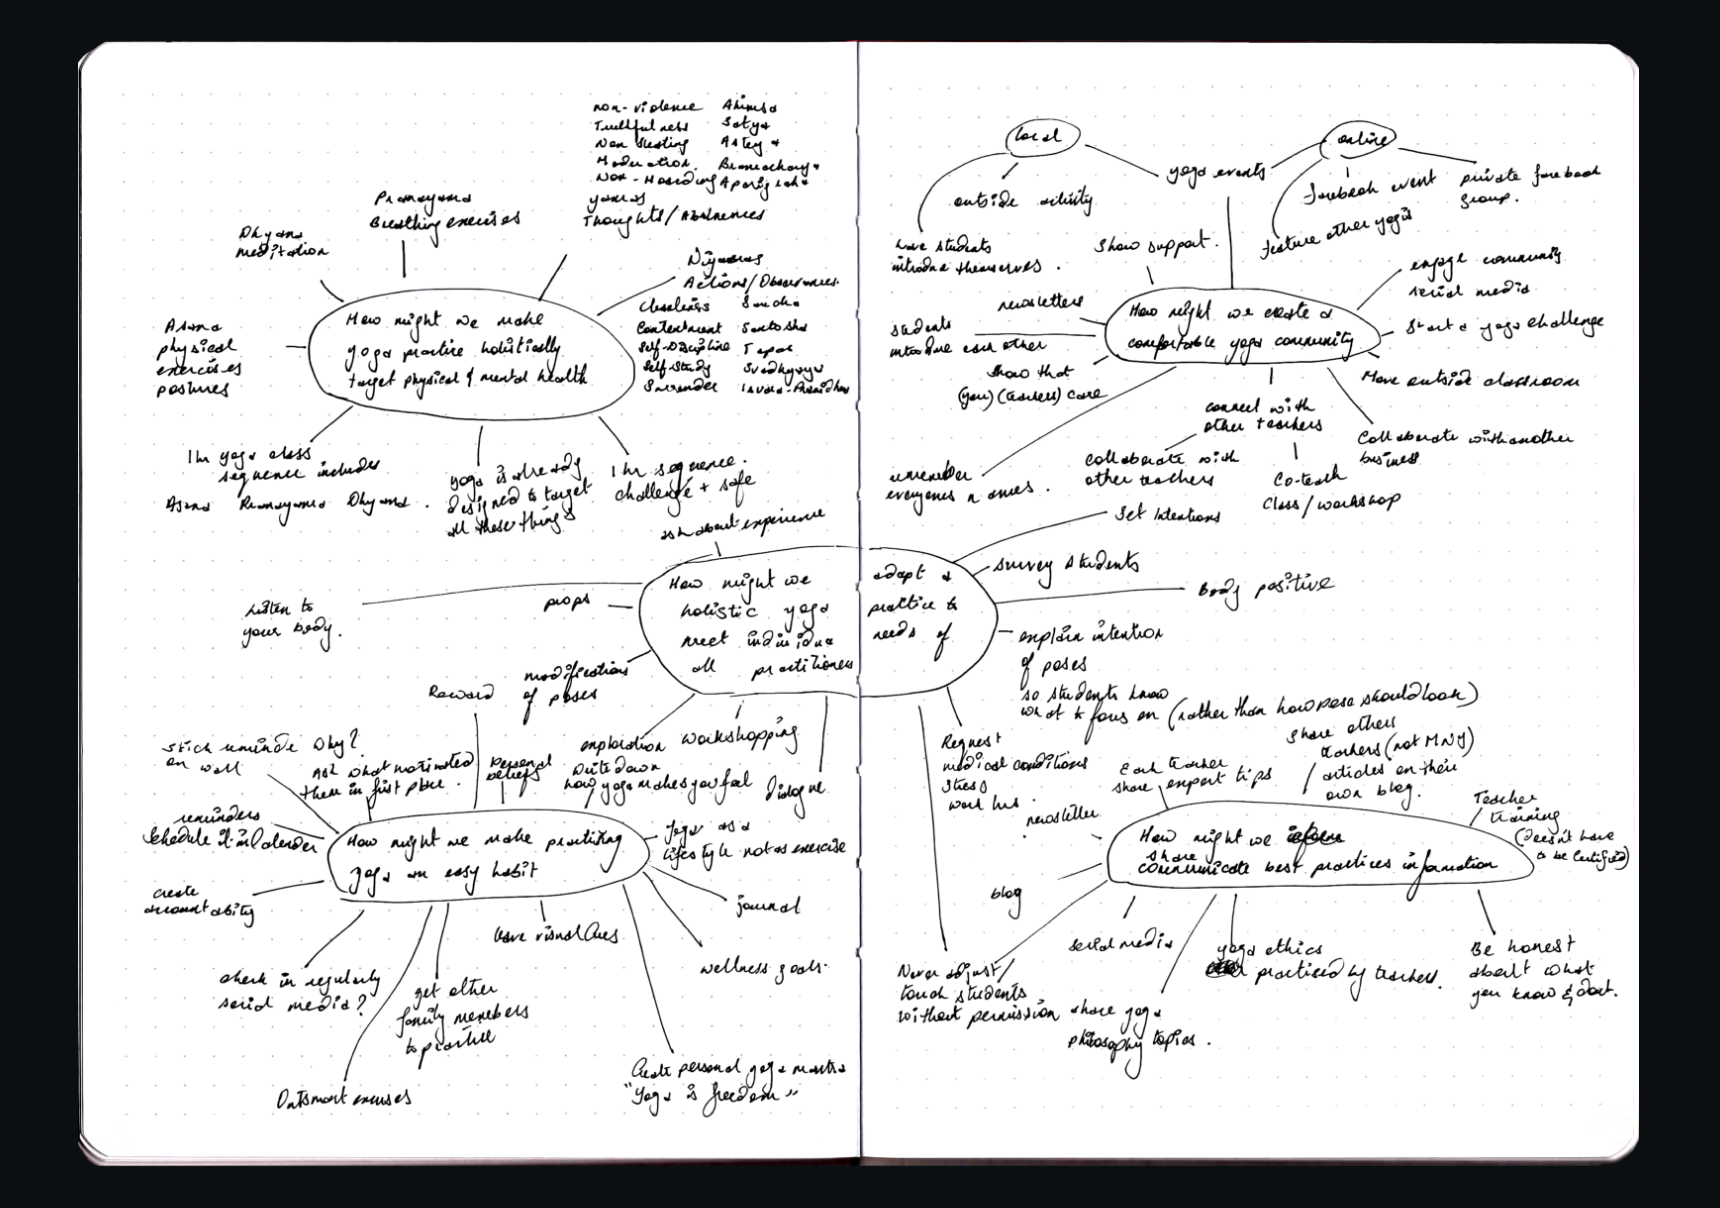 non-violence Ahimsa
Truthfulness Satya
Non Stealing Asteya
Moderation Bramacharya
Non-Hoarding Aparigraha
yamas
Thoughts/Abstinences
Pranayama
Breathing exercises
Dhyana
meditation
Niyamas
Actions/Observances
Cleanliness Saucha
Contentment Santosha
Self-Discipline Tapas
Self-Study Svadhyaya
Surrender Isvara-Pranidhana
Asana
physical
exercises
postures
How might we make
yoga practice holistically
target physical & mental health
1 hr yoga class
sequence includes
Asana Pranayama Dhyana.
yoga is already
designed to target
all these things
1 hr sequence.
challenge + safe
local
online
yoga events
outside activity
have students
introduce themselves.
Show support.
facebook event
private facebook
group.
feature other yogis
engage community
social media
newsletters
students
introduce each other
show that
(you)(teachers) care
How might we create a
comfortable yoga community
Start a yoga challenge
Move outside classroom
connect with
other teachers
collaborate with
other teachers
Co-teach
Class/workshop
Collaborate with another
business
remember
everyones names.
ask about experience
How might we adapt a
holistic yoga practice to
meet individual needs of
all practitioners
Set Intentions
survey students
Body positive
explain intention
of poses
so students know
what to focus on (rather than how pose should look)
Listen to
your body.
props
modifications
of poses
exploration
workshopping
Dialogue
Request
medical conditions
stress
work hrs.
Never adjust/
touch students
without permission
Reward
stick reminder
on wall
Why?
Ask what motivated
them in first place.
Personal
beliefs
Write down
how yoga makes you feel
reminders
Schedule it in Calender
How might we make practicing
yoga an easy habit
Yoga as a
lifestyle not as exercise
create
accountability
journal
have visual Cues
wellness goals.
check in regularly
social media?
get other
family members
to practice
Outsmart excuses
Create personal yoga mantra
"Yoga is freedom"
Each teacher
share expert tips
share others
teachers (not MNY)
articles on their
own blog.
Teacher
training
(Doesn't have
to be Certified)
newsletter
How might we
share
communicate best practices information
blog
social media
yoga ethics
practiced by teachers.
Be honest
about what
you know & dont.
share yoga
philosophy topics.